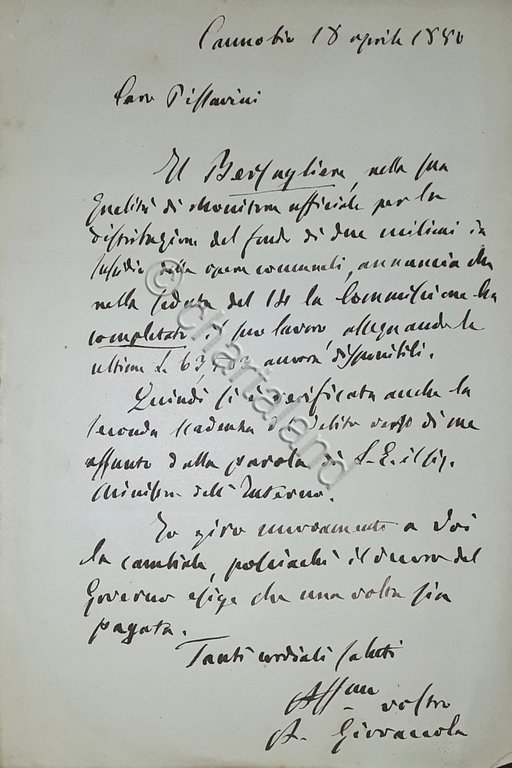 Cannobio 18 aprile 1880
Caro Pissavini
Il Bersagliere, nella sua
qualità di Monitore ufficiale per la
distribuzione del fondo di due milioni in
sussidio alle opere comunali, annuncia che
nella seduta del 14 la Commissione ha
completato il suo lavoro assegnando le
ultime L. ancora disponibili.
Quindi si è verificata anche la
seconda scadenza del debito verso di me
assunto dalla parola di S. E. il Sig.
Ministro dell'Interno.
Io giro nuovamente a Voi
la cambiale, poichè il decoro del
Governo esige che una volta sia
pagata.
Tanti cordiali saluti
Affmo
vostro
A. Giovanola
© chartaland